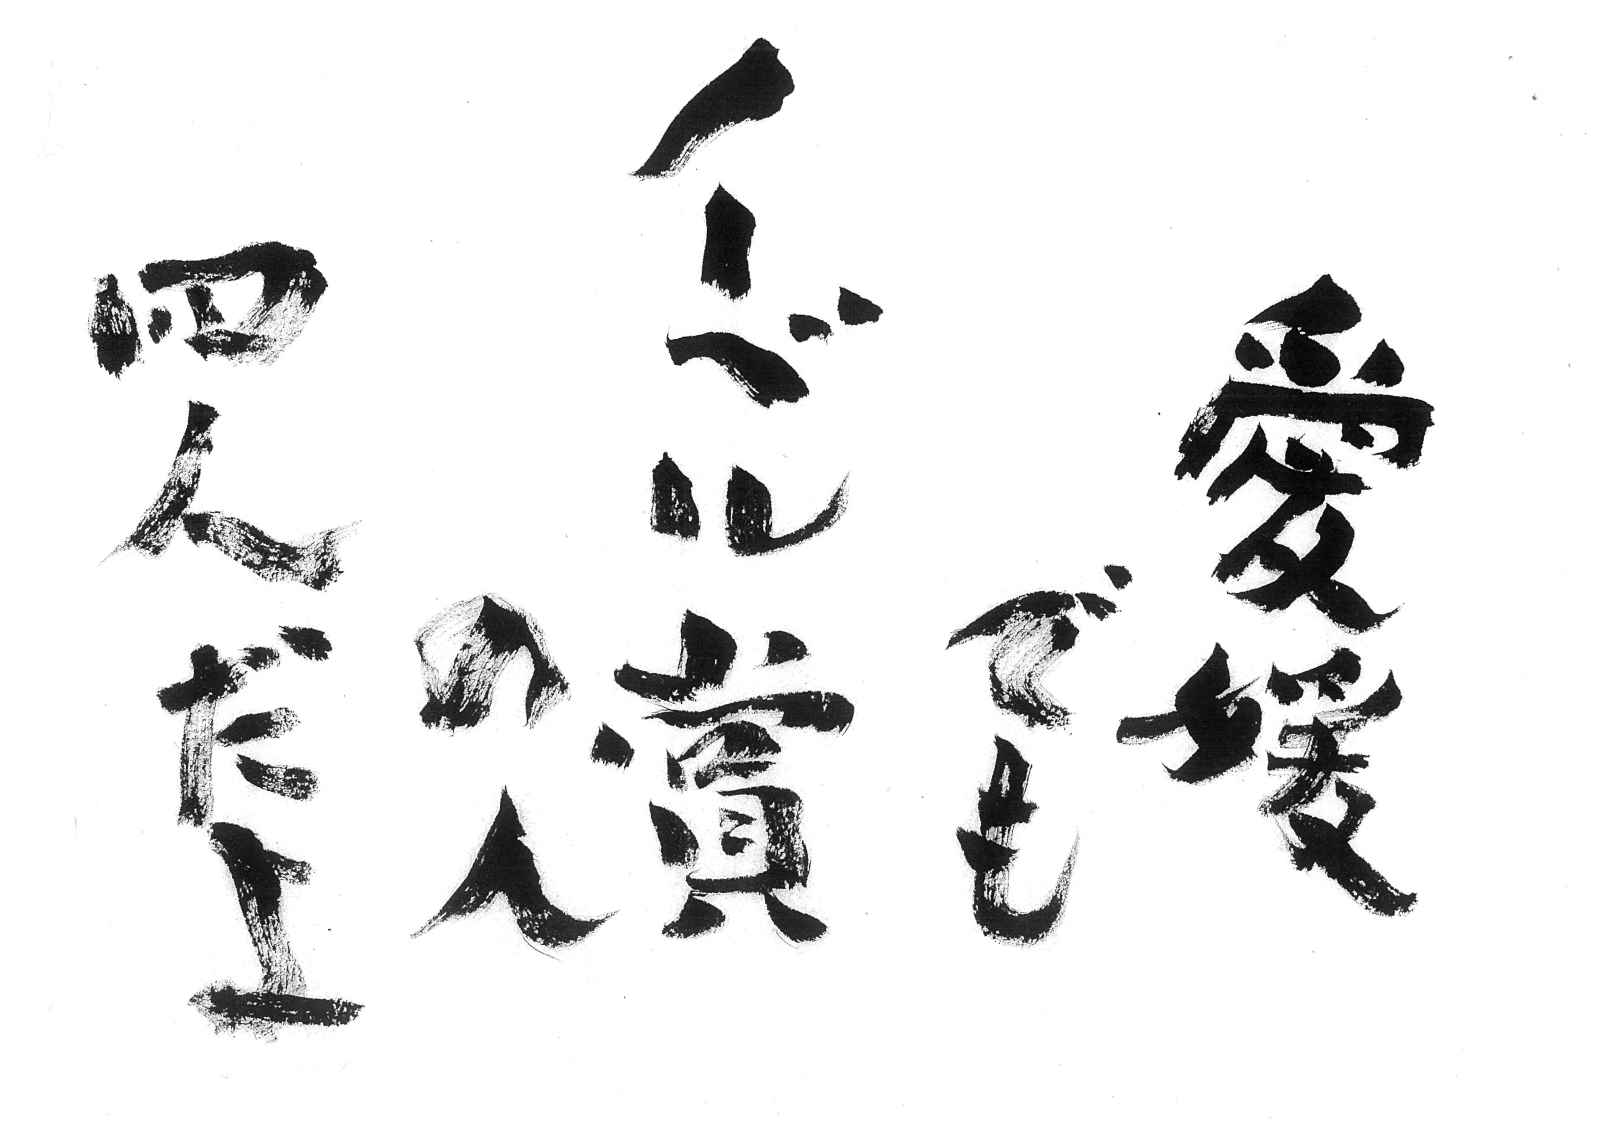 愛媛
でも
ノーベル賞
の人
四人だよ